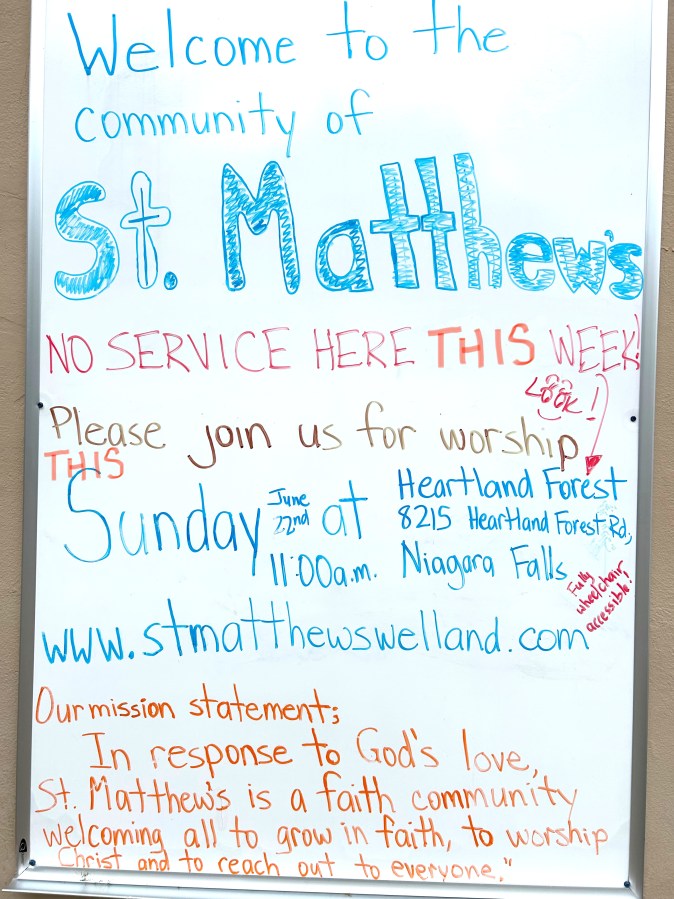 Welcome to the
community of
St. Matthew's
NO SERVICE HERE THIS WEEK!
LOOK!
Please join us for worship
THIS
Sunday June 22nd at 11:00a.m.
Heartland Forest
8215 Heartland Forest Rd,
Niagara Falls
Fully
wheelchair
accessible!
www.stmatthewswelland.com
Our mission statement:
In response to God's love,
St. Matthew's is a faith community
welcoming all to grow in faith, to worship
Christ and to reach out to everyone."